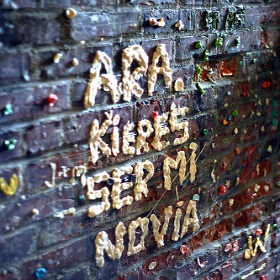 ARA
KIERES
SER MI
NOVIA